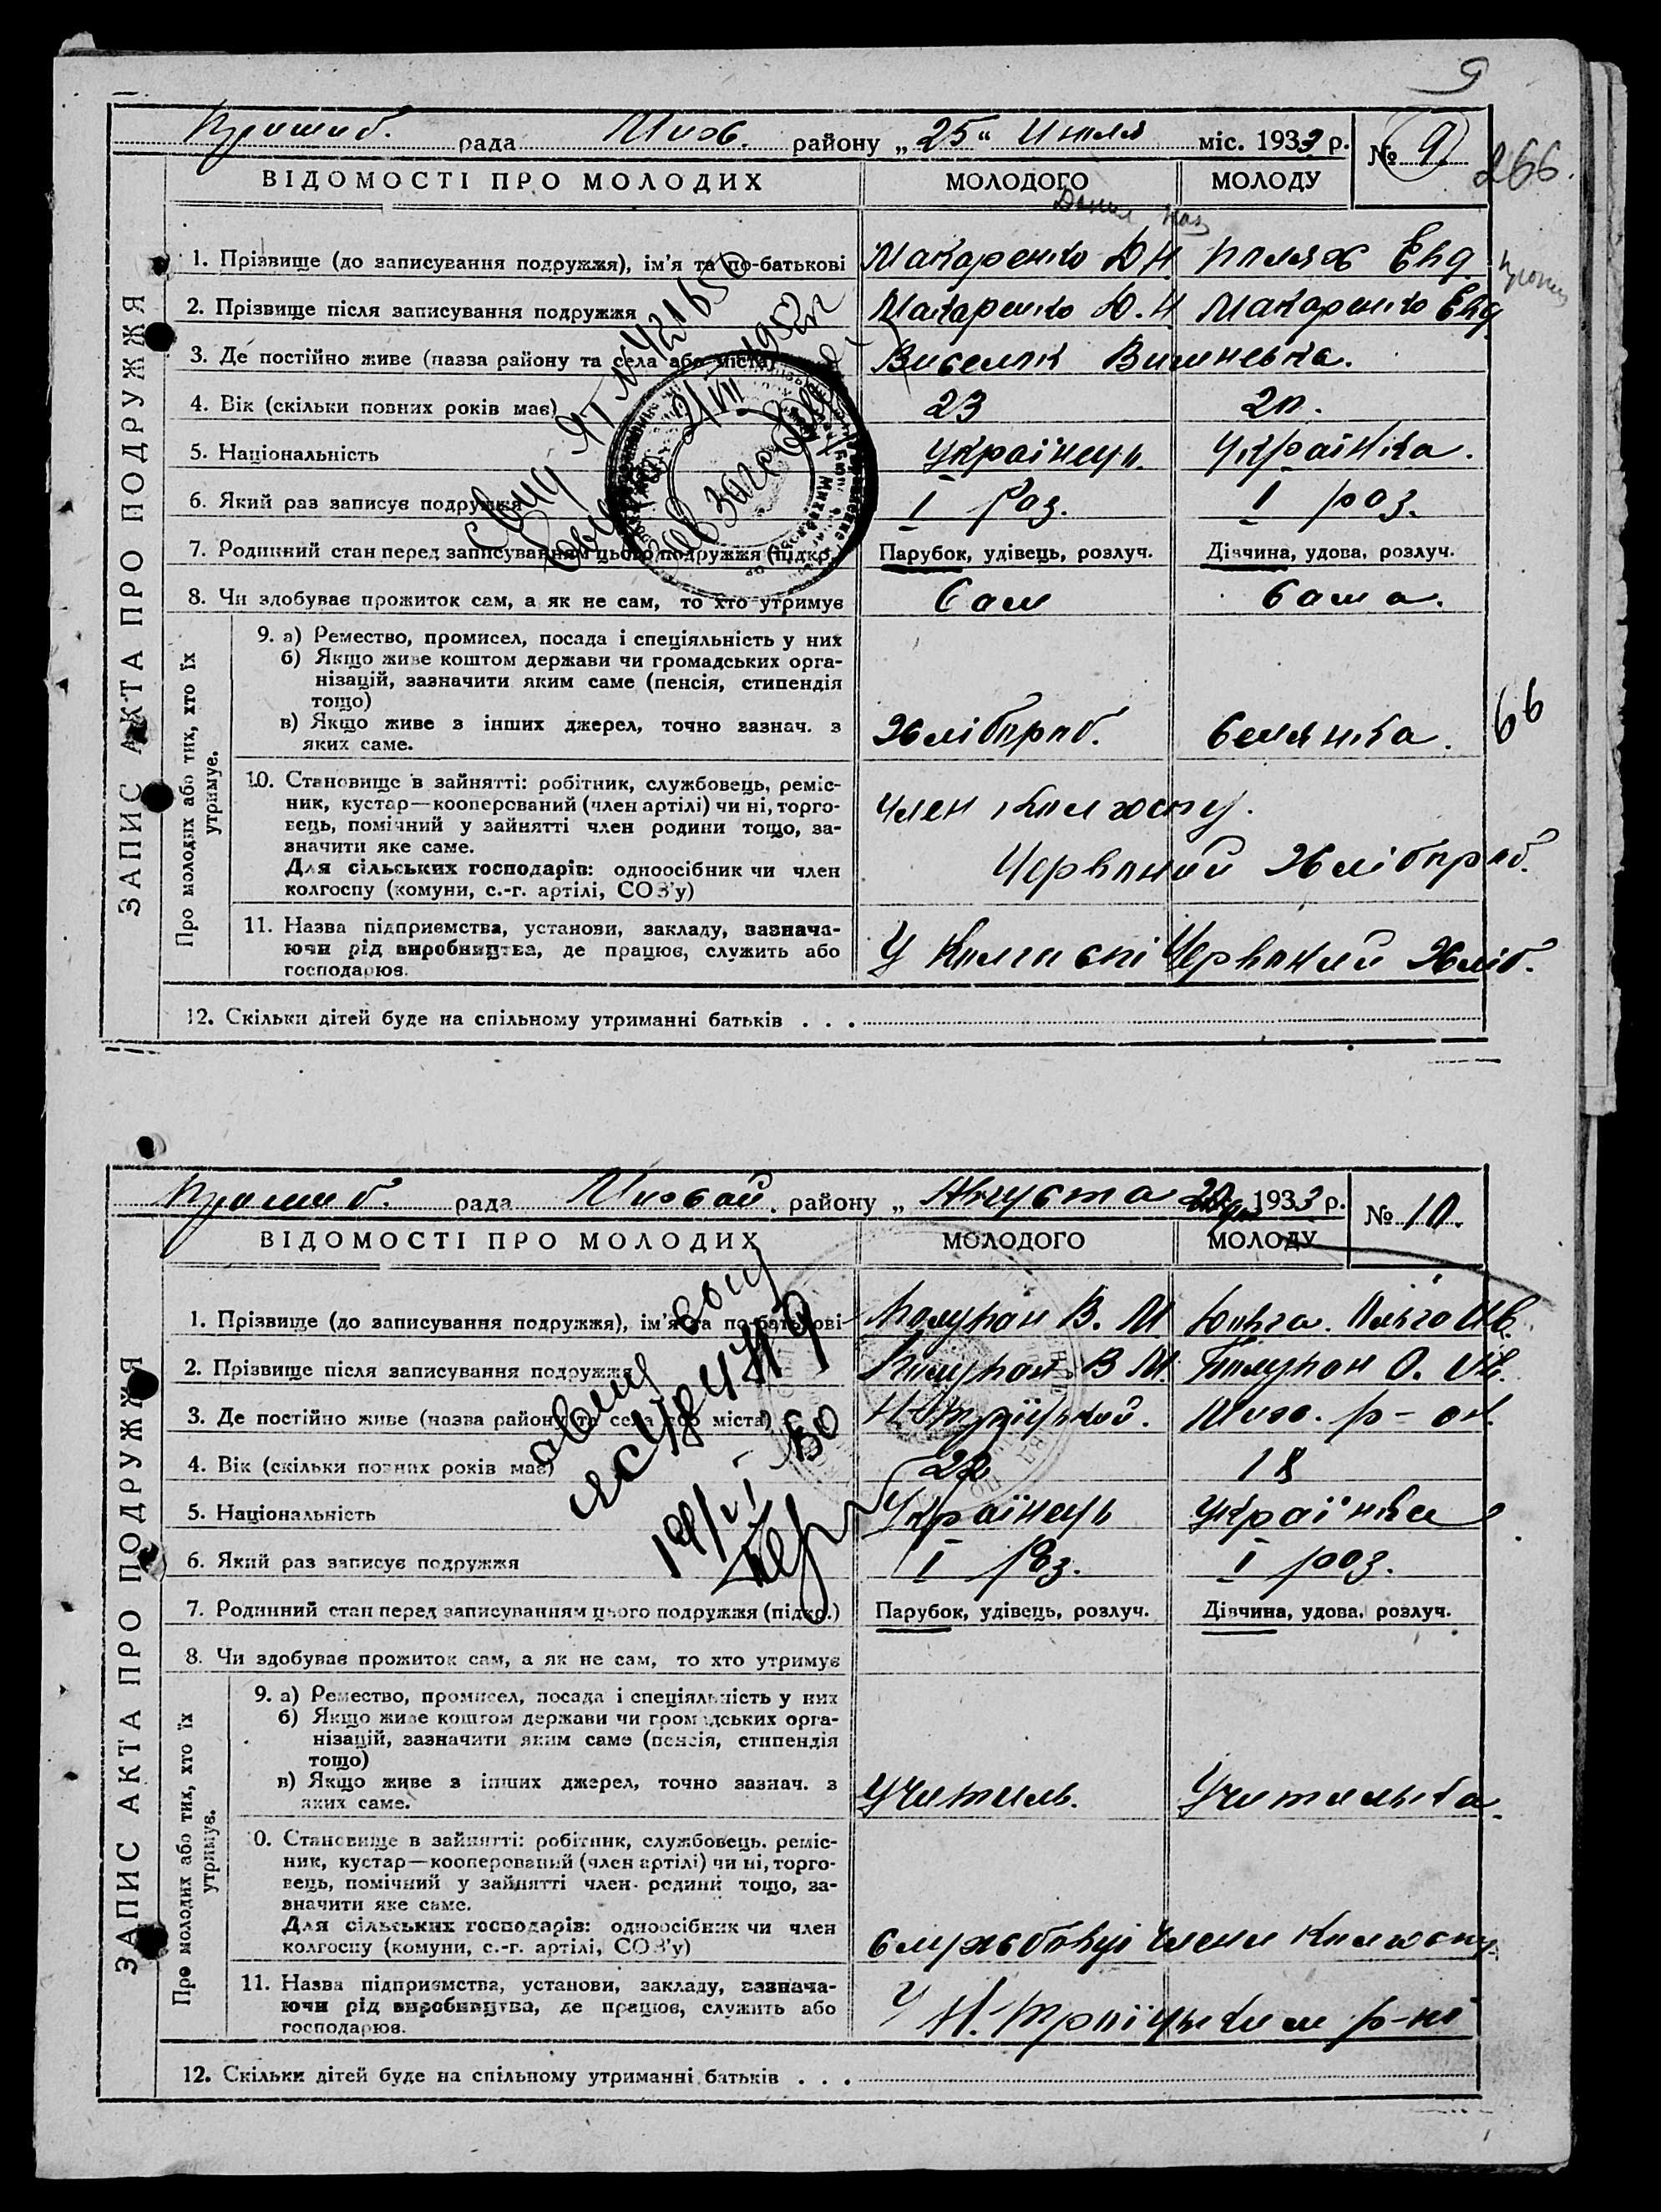 9
Пришиб. рада Мих. району „25“ Июля міс. 1933 р. № 9
266.
ВІДОМОСТІ ПРО МОЛОДИХ МОЛОДОГО МОЛОДУ
ЗАПИС АКТА ПРО ПОДРУЖЖЯ
1. Прізвище (до записування подружжя), ім'я та по-батькові Макаренко Д Н Полях Евд.
2. Прізвище після записування подружжя Макаренко Д. Н Макаренко Евд
3. Де постійно живе (назва району та села або міста) Виселок Вишневка.
4. Вік (скільки повних років має) 23 20.
5. Національність Українець. Українка.
6. Який раз записує подружжя I раз. I роз.
7. Родинний стан перед записуванням цього подружжя (підкр.) Парубок, удівець, розлуч. Дівчина, удова, розлуч.
8. Чи здобуває прожиток сам, а як не сам, то хто утримує Сам Сама.
Про молодих або тих, хто їх утримує.
9. а) Ремество, промисел, посада і спеціяльність у них
б) Якщо живе коштом держави чи громадських орга-
нізацій, зазначити яким саме (пенсія, стипендія
тощо)
в) Якщо живе з інших джерел, точно зазнач. з
яких саме. Хлібороб. Селянка.
66
10. Становище в зайнятті: робітник, службовець, реміс-
ник, кустар—кооперований (член артілі) чи ні, торго-
вець, помічний у зайнятті член родини тощо, за-
значити яке саме. член колхозу.
Для сільських господарів: одноосібник чи член
колгоспу (комуни, с.-г. артілі, СОЗ'у) Червоний Хлібороб.
11. Назва підприємства, установи, закладу, зазнача-
ючи рід виробництва, де працює, служить або
господарює. У Колгоспі Червоний Хліб.
12. Скільки дітей буде на спільному утриманні батьків . . .
Пришиб. рада Михай. району „ Августа 20 дня 1933 р. № 10.
ВІДОМОСТІ ПРО МОЛОДИХ МОЛОДОГО МОЛОДУ
ЗАПИС АКТА ПРО ПОДРУЖЖЯ
1. Прізвище (до записування подружжя), ім'я та по-батькові В. М Ольга Ив.
2. Прізвище після записування подружжя В М. О. Ив.
3. Де постійно живе (назва району та села або міста) Н-Троїцький. Мих. р-он.
4. Вік (скільки повних років має) 22 18
5. Національність Українець Українка
6. Який раз записує подружжя I Роз. I роз.
7. Родинний стан перед записуванням цього подружжя (підкр.) Парубок, удівець, розлуч. Дівчина, удова, розлуч.
8. Чи здобуває прожиток сам, а як не сам, то хто утримує
Про молодих або тих, хто їх утримує.
9. а) Ремество, промисел, посада і спеціяльність у них
б) Якщо живе коштом держави чи громадських орга-
нізацій, зазначити яким саме (пенсія, стипендія
тощо)
в) Якщо живе з інших джерел, точно зазнач. з
яких саме. Учитель. Учителька.
10. Становище в зайнятті: робітник, службовець, реміс-
ник, кустар—кооперований (член артілі) чи ні, торго-
вець, помічний у зайнятті член родини тощо, за-
значити яке саме.
Для сільських господарів: одноосібник чи член
колгоспу (комуни, с.-г. артілі, СОЗ'у) Службовці Члени Колхоспу
11. Назва підприємства, установи, закладу, зазнача-
ючи рід виробництва, де працює, служить або
господарює. У Н.-Троїцьким р-ні
12. Скільки дітей буде на спільному утриманні батьків . . .